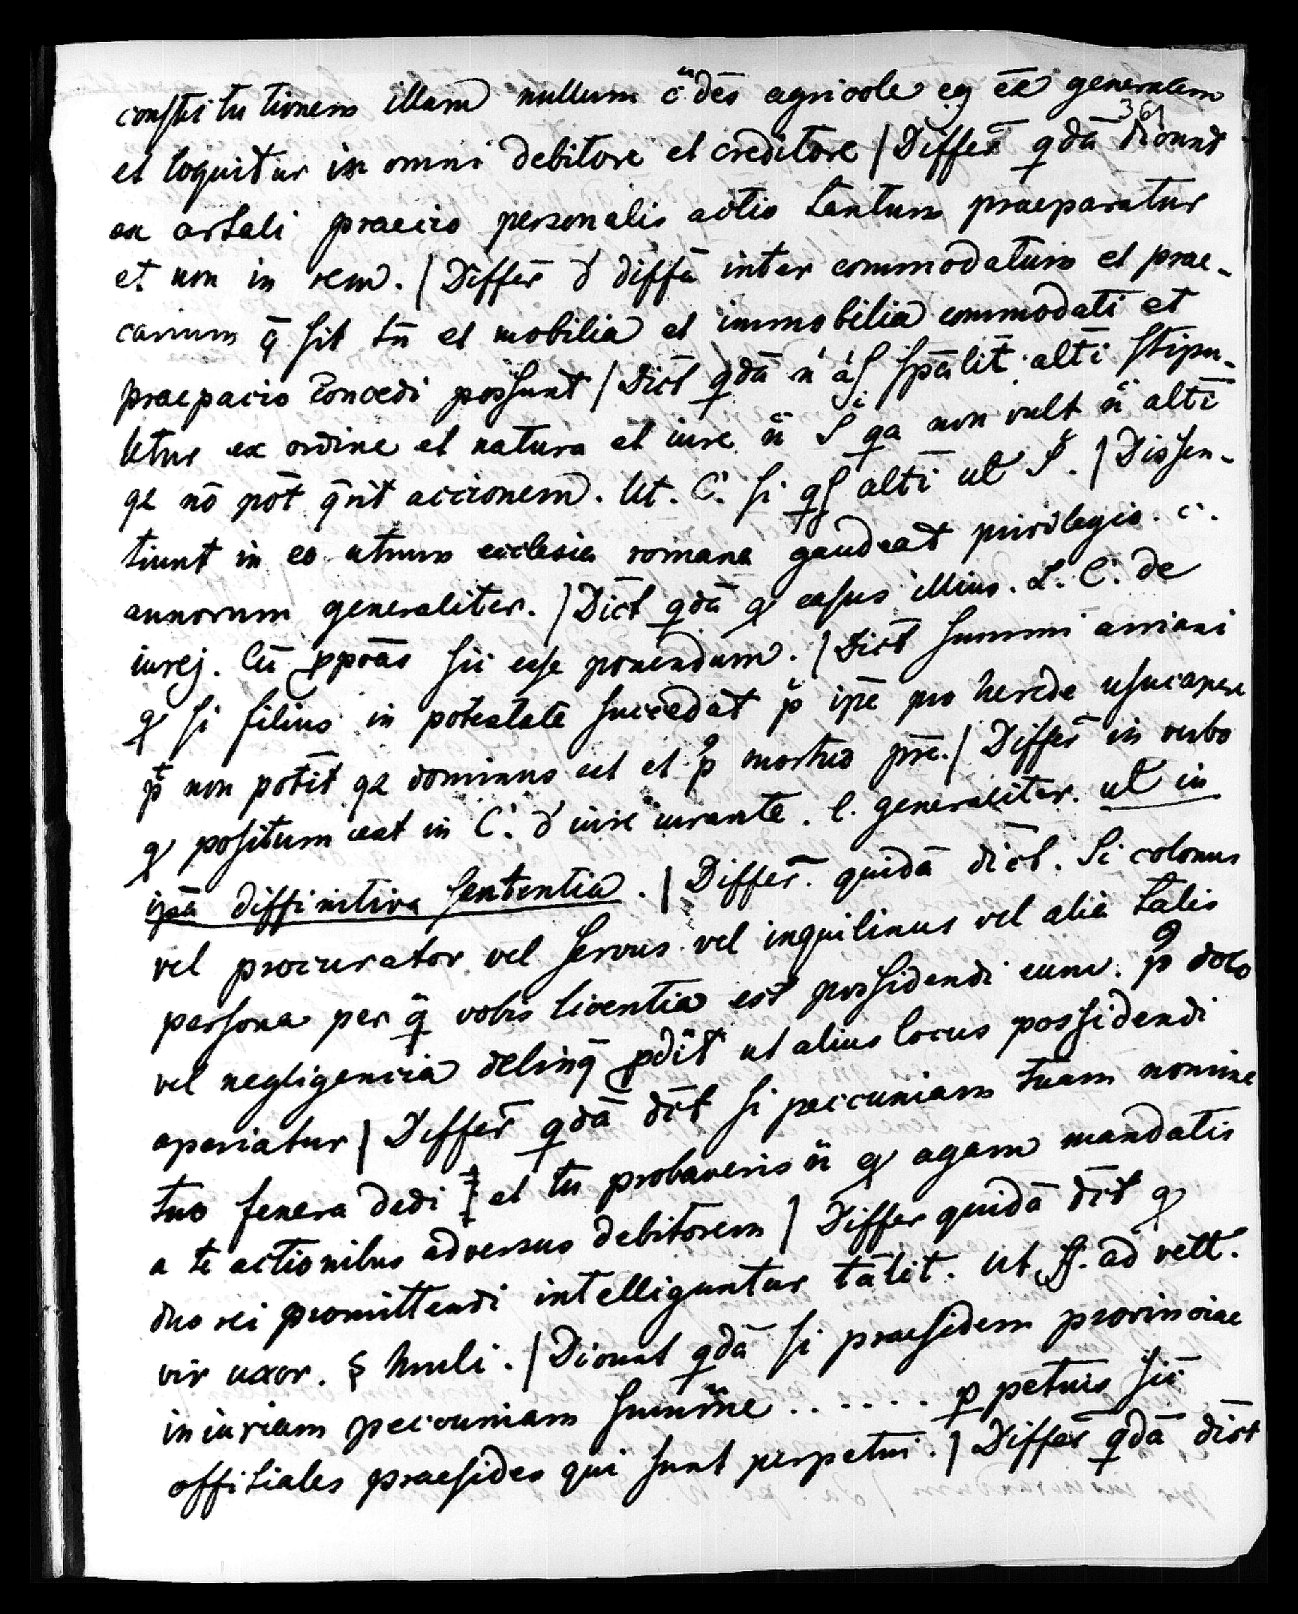 constitutionem illam nullum c̄ des agricole eq̄ ēē generalem
361
et loquitur in omni debitore et creditore / Differ̄ qdā dicunt
ex artali praecio personalis actio tantum praeparatur
et non in rem. / Differ̄ d̄ diffā inter commodatum et prae-
carium q̄ sit tn̄ et mobilia et immobilia commodati et
praepacio concedi possunt / Dict qdā n̄ spālit alti stipu-
letur ex ordine et natura et iure n̄ S qa non vult n̄ alti
qe nō pōt q̄rit accionem. Ut. C. si qs alti ul S. / Dissen-
tiunt in eo utrum ecclesia romana gaudeat privilegio. c.
annorum generaliter. / Dict qdā q casus illius. L. C. de
iurej. Cū ppoās sii esse ponendum. / Dict summi arriani
q si filius in potestate succedat p̄ ipē pro herede usucapere
p̄t non potīt qe dominus est et p̄ mortuo pr̄e. / Differ̄ in verbo
q positum est in C. d iure iurante. l. generaliter. ul in
ipā diffinitiva sententia. / Differ̄. quidā dict. Si colonus
vel procurator vel servus vel inquilinus vel alia talis
persona per q̄ vobis licentia est possidendi eum. p̄ dolo
vel negligencia delinq̄ pdīt ut alius locus possidendi
aperiatur / Differ̄ qdā dc̄t si peccuniam tuam nomine
tuo fenera dedi et tu probaveris n̄ q agam mandatis
a te actionibus adversus debitorem / Differ quidā dc̄t q
duo rei promittendi intelliguntur tālit. Ut ff. ad vell.
vir uxor. § muli. / Dicunt qdā si praesidem provinciae
iniuriam peccuniam summe ...... p petuis sii
offitiales praesides qui sunt perpetui. / Differ̄ qdā dict